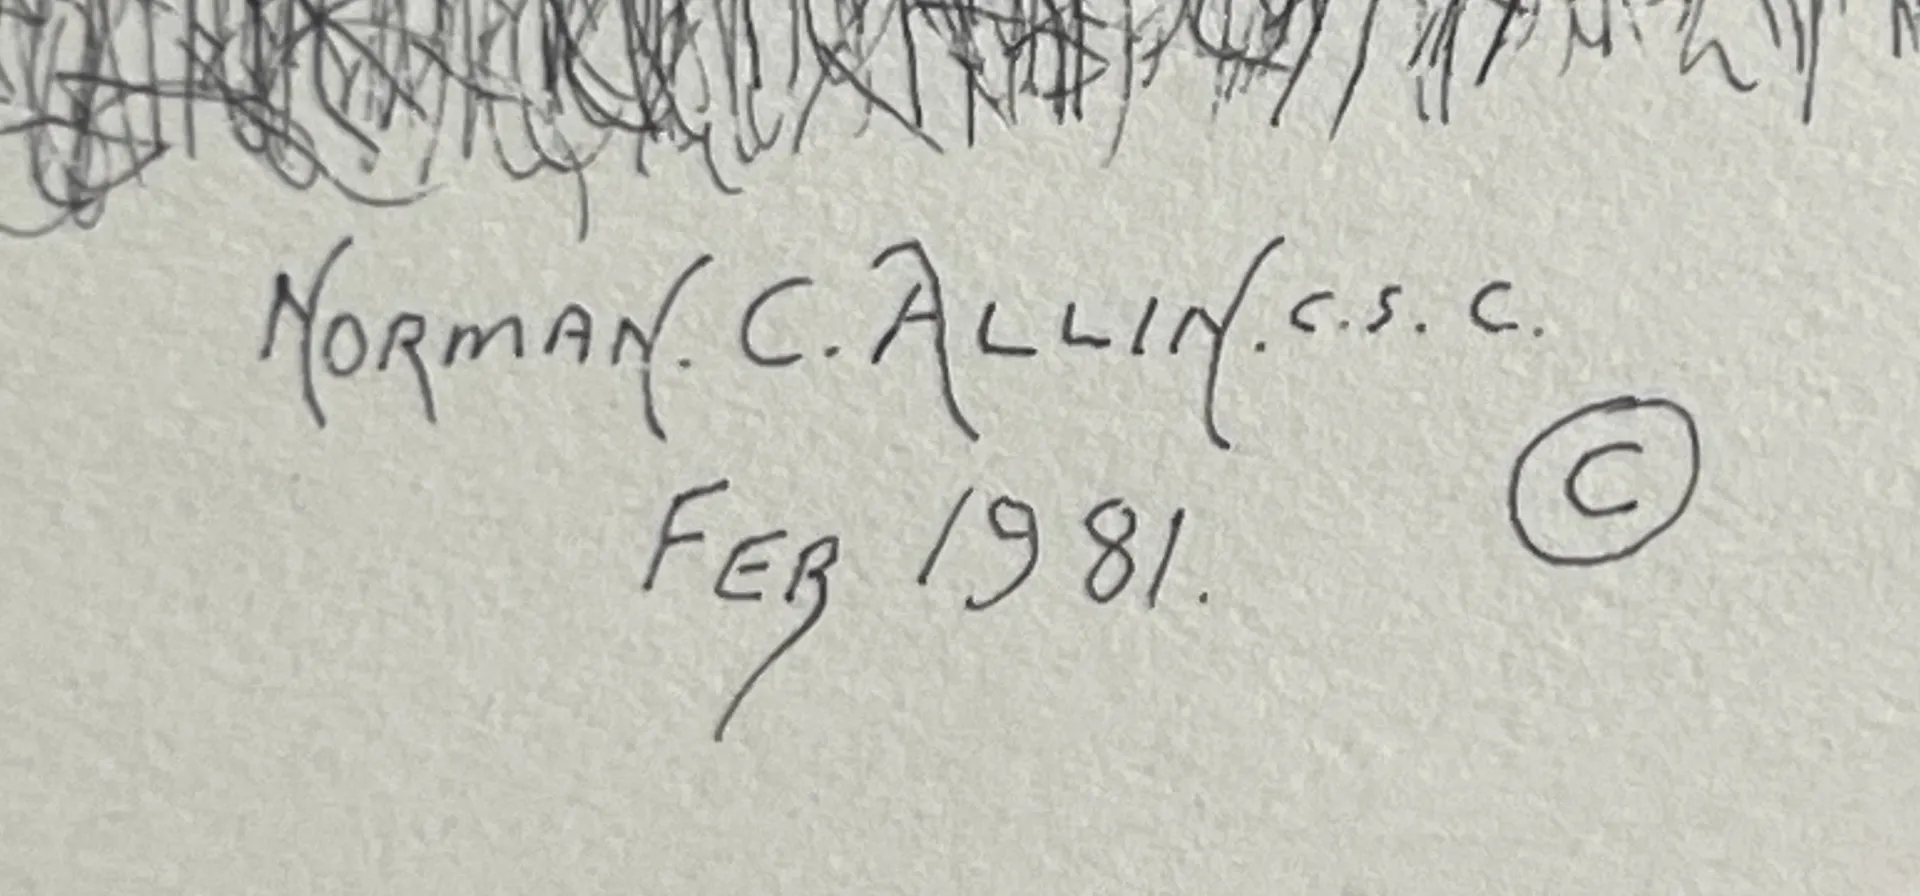 NORMAN. C. ALLIN. C.S.C.
©
FEB 1981.